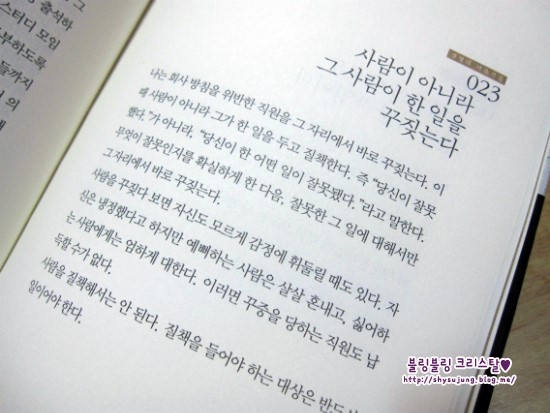 출석하
스터디 모임
부하도록
들까지
의
023
사람이 아니라
그 사람이 한 일을
꾸짖는다
나는 회사 방침을 위반한 직원을 그 자리에서 바로 꾸짖는다. 이
때 사람이 아니라 그가 한 일을 두고 질책한다. 즉 "당신이 잘못
했다."가 아니라, "당신이 한 어떤 일이 잘못됐다."라고 말한다.
무엇이 잘못인지를 확실하게 한 다음, 잘못한 그 일에 대해서만
그 자리에서 바로 꾸짖는다.
사람을 꾸짖다 보면 자신도 모르게 감정에 휘둘릴 때도 있다. 자
신은 냉정했다고 하지만 예뻐하는 사람은 살살 혼내고, 싫어하
는 사람에게는 엄하게 대한다. 이러면 꾸중을 당하는 직원도 납
득할 수가 없다.
사람을 질책해서는 안 된다. 질책을 들어야 하는 대상은 반드시
일이어야 한다.
블링블링 크리스탈♥
http://shysujung.blog.me/